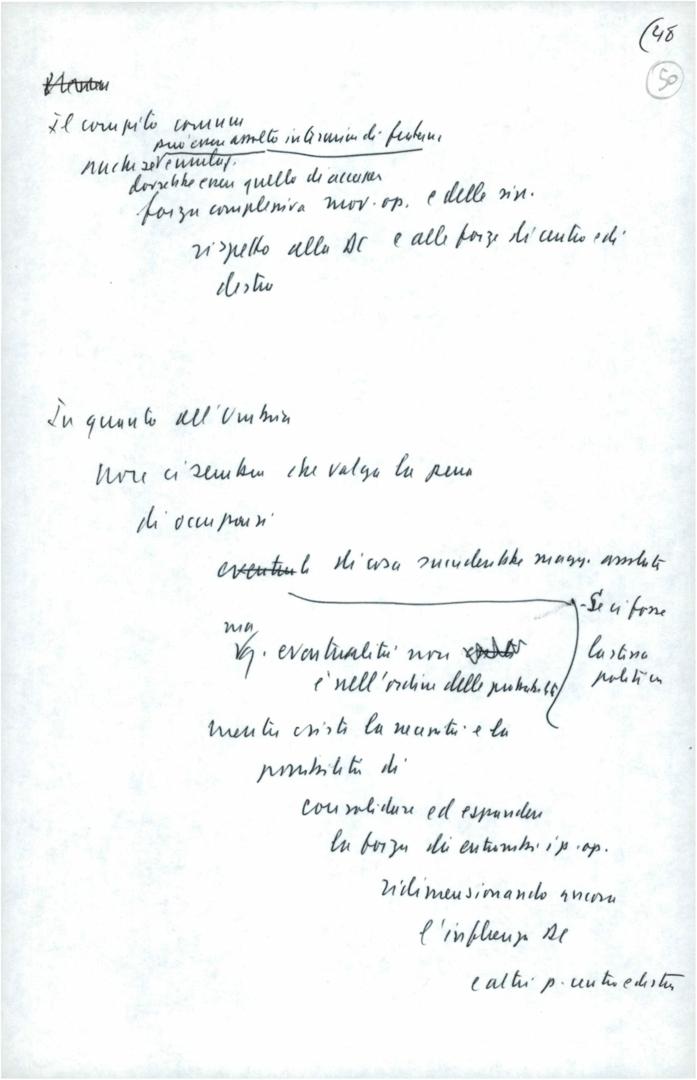 (48
50
Il compito comune
può essere assolto in termini di
dovrebbe essere quello di accrescere
forza complessiva mov. op. e delle sin.
rispetto alla DC e alle forze di centro e di
destra
In quanto all'Umbria
Non ci sembra che valga la pena
di occuparsi
di cosa succederebbe magg. assoluta
- Se ci fosse
ma
q. eventualità non
la stessa
è nell'ordine delle probabilità
politica
mentre esiste la necessità e la
possibilità di
consolidare ed espandere
la forza di entrambi i p. op.
ridimensionando ancora
l'influenza DC
e altri p. centro e destra